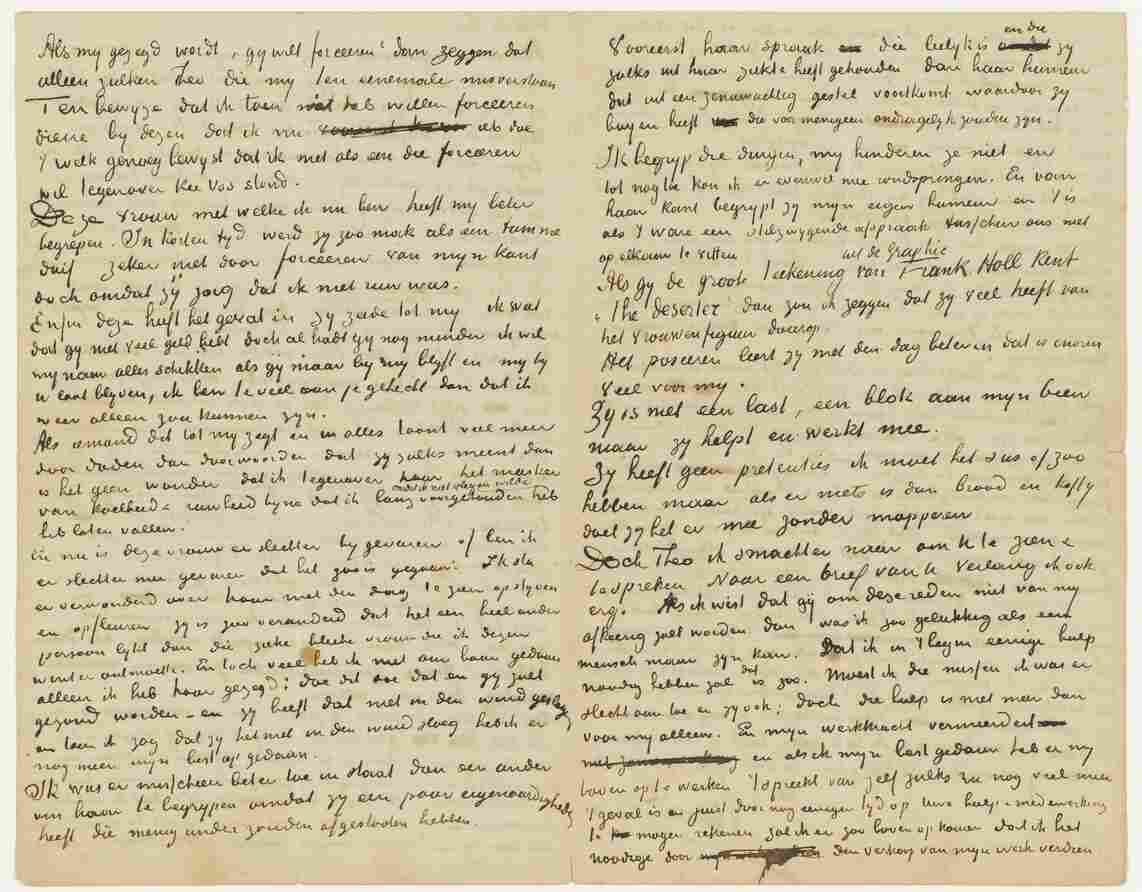 Als my gezegd wordt, "gy wilt forceeren" dan zeggen dat
alleen zulken Theo die my ten eenemale misverstaan
Ten bewyze dat ik toen niet heb willen forceeren
diene by dezen dat ik nu het doe
't welk genoeg bewyst dat ik niet als een die forceeren
wil tegenover Kee Vos stond.
Deze vrouw met welke ik nu ben heeft my beter
begrepen. In korten tyd werd zy zoo mak als een tamme
duif zeker niet door forceeren van myn kant
doch omdat zy zag dat ik niet ruw was.
Enfin deze heeft het geval in zy zeide tot my ik wat
dat gy niet veel geld hebt doch al hadt gy nog minder ik wil
my naar alles schikken als gy maar by my blyft en my by
u laat blyven, ik ben te veel aan je gehecht dan dat ik
weer alleen zou kunnen zyn.
Als iemand dit tot my zegt en in alles toont veel meer
door daden dan door woorden dat zy zulks meent dan
is het geen wonder dat ik tegenover haar het masker
van koelheid & ruwheid byna dat ik lang voorgehouden heb omdat ik niet vleyen wilde
heb laten vallen.
En nu is deze vrouw er slechter by gevaren of ben ik
er slechter mee gevaren dat het zoo is gegaan? Ik sta
er verwonderd over haar met den dag te zien opklaren
en opfleuren zy is zoo veranderd dat het een heel ander
persoon lykt dan die zieke bleeke vrouw die ik dezen
winter ontmoette. En toch veel heb ik niet aan haar gedaan
alleen ik heb haar gezegd: doe dit doe dat en gy zult
gezond worden – en zy heeft dat niet in den wind geslagen
en toen ik zag dat zy het niet in den wind sloeg heb ik er
nog meer myn best op gedaan.
Ik was er misschien beter toe in staat dan een ander
om haar te begrypen omdat zy een paar eigenaardigheden
heeft die menig ander zouden afgestooten hebben.
Vooreerst haar spraak die leelyk is en die zy
zulks uit haar ziekte heeft gehouden dan haar humeur
dat uit een zenuwachtig gestel voortkomt waardoor zy
buyen heeft die voor menigeen ondragelyk zouden zyn.
Ik begryp die dingen, my hinderen ze niet en
tot nog toe kon ik er evenwel mee omspringen. En van
haar kant begrypt zy myn eigen humeur en 't is
als 't ware een stilzwygende afspraak tusschen ons niet
op elkaar te vitten.
Als gy de groote teekening van Frank Holl uit de Graphic kent
"The deserter" dan zou ik zeggen dat zy veel heeft van
het vrouwenfiguur daarop.
Het poseeren leert zy met den dag beter en dat is enorm
veel voor my.
Zy is niet een last, een blok aan myn been
maar zy helpt en werkt mee.
Zy heeft geen pretenties ik moet het dus of zoo
hebben maar als er niets is dan brood en koffy
doet zy het er mee zonder mopperen
Doch Theo ik smachter naar om U te zien &
te spreken Naar een brief van U verlang ik ook
erg. Als ik wist dat gij om deze reden niet van my
afkeerig zult worden dan was ik zoo gelukkig als een
mensch maar zyn kan. Dat ik in 't begin eenige hulp
noodig hebben zal dat is zoo. Moest ik die missen ik was er
slecht aan toe en zy ook; doch die hulp is niet meer dan
voor my alleen. En myn werkkracht vermeerdert
en als ik myn best gedaan heb er my
boven op te werken 't spreekt van zelf zulks nu nog veel meer
't geval is en juist door nog eenigen tyd op Uwe hulp & medewerking
te mogen rekenen zal ik er zoo boven op komen dat ik het
noodige door den verkoop van myn werk verdien